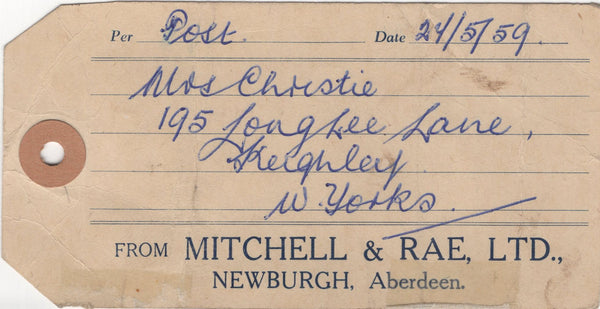 Per Post. Date 21/5/59.
Mrs Christie
195 Long Lee Lane,
Keighley
W. Yorks.
FROM MITCHELL & RAE, LTD.,
NEWBURGH, Aberdeen.